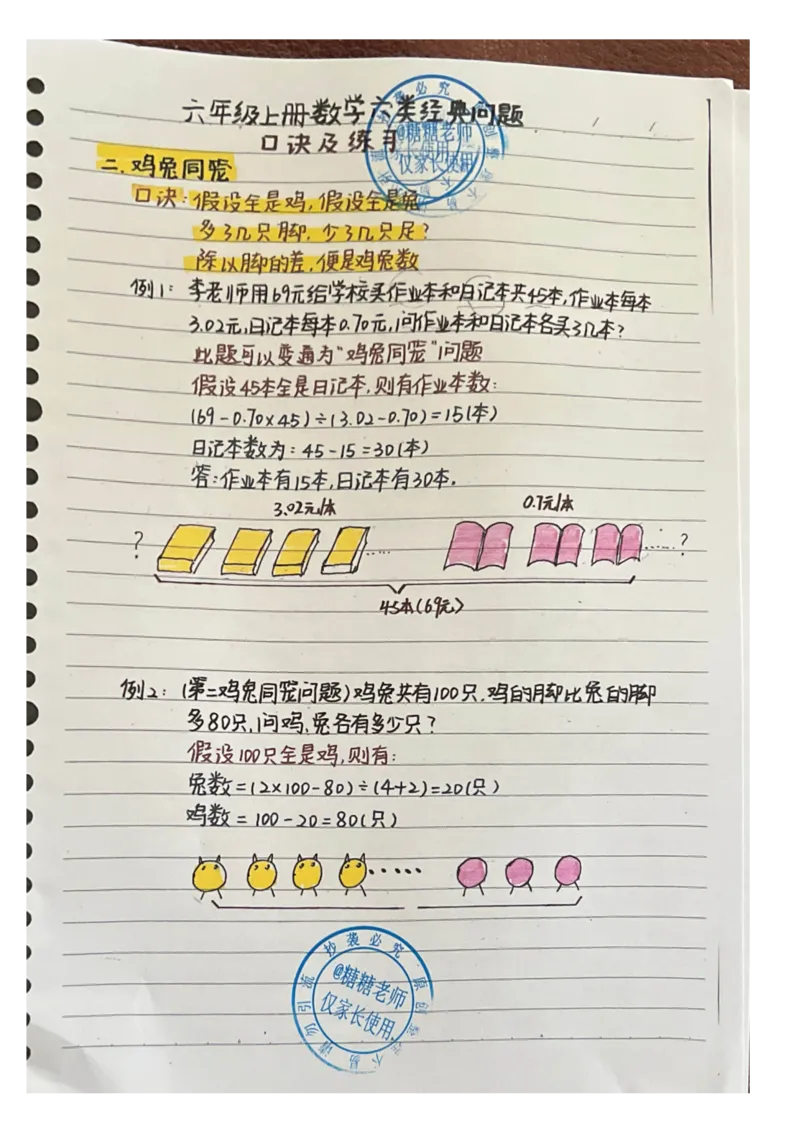 六年级上册数学六类经典问题
口诀及练习
二.鸡兔同笼
口诀:假设全是鸡,假设全是兔
多了几只脚,少了几只足?
除以脚的差,便是鸡兔数
例1:李老师用69元给学校买作业本和日记本共45本,作业本每本
3.02元,日记本每本0.70元,问作业本和日记本各买了几本?
此题可以变通为“鸡兔同笼”问题
假设45本全是日记本,则有作业本数:
(69-0.70×45)÷(3.02-0.70)=15(本)
日记本数为:45-15=30(本)
答:作业本有15本,日记本有30本.
3.02元/本 0.7元/本
? ...... ...... ?
45本(69元)
例2:(第二鸡兔同笼问题)鸡兔共有100只,鸡的脚比兔的脚
多80只,问鸡、兔各有多少只?
假设100只全是鸡,则有:
兔数=(2×100-80)÷(4+2)=20(只)
鸡数=100-20=80(只)
......
抄袭必究
@糖糖老师
仅家长使用
请勿引流